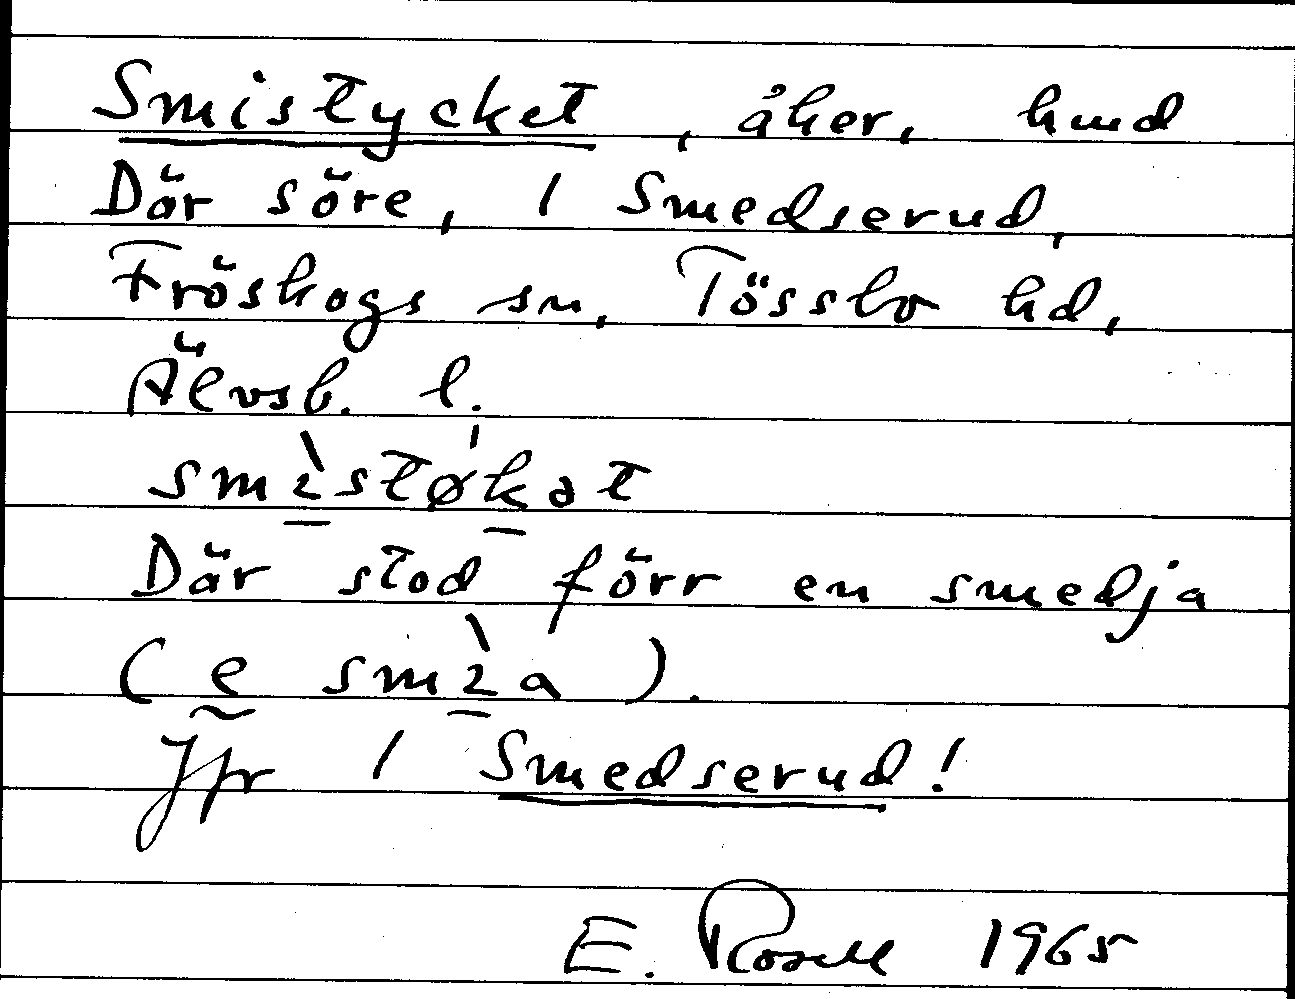 Smistycket, åker, hmd
Där söre, 1 Smedserud,
Fröskogs sn, Tössbo hd,
Älvsb. l.
smìstø̀kət
Där stod förr en smedja
(e smìa).
Jfr 1 Smedserud!
E. Rosell 1965